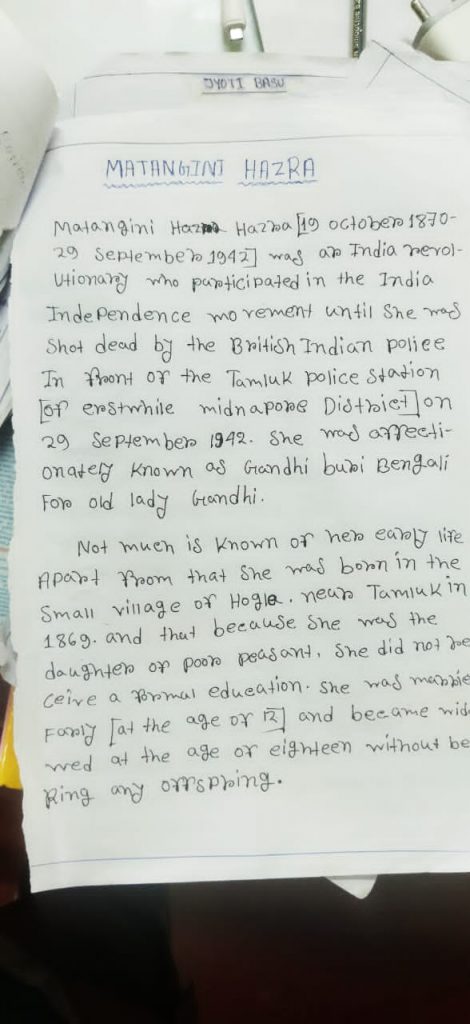 JYOTI BASU
MATANGINI HAZRA
Matangini Hazra Hazra [19 october 1870-
29 September 1942] was an India revol-
utionary who participated in the India
Independence movement until she was
shot dead by the British Indian police
In front of the Tamluk police station
[of erstwhile midnapore District] on
29 September 1942. she was affecti-
onately known as Gandhi buri Bengali
For old lady Gandhi.
Not much is known of her early life
Apart from that she was born in the
small village of Hogla. near Tamluk in
1869. and that because she was the
daughter of poor peasant, she did not re
ceive a formal education. she was marrie
Early [at the age of 12] and became wid
wed at the age of eighteen without be
Ring any offspring.